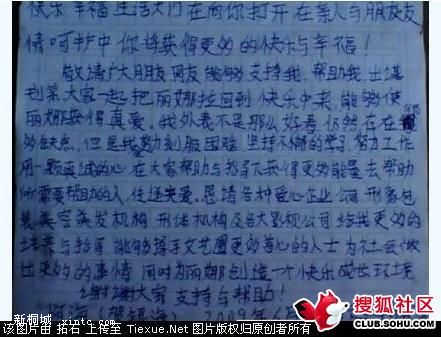 快乐 幸福 生活大门 在向你打开 在亲人与朋友友
情呵护中 你将获得更多的快乐与幸福!
敬请广大朋友网友能够支持我、帮助我、出谋
划策大家一起把丽娜拉回到快乐中来,能够使
丽娜获得真爱。我外表不是那么好看 仍然存在
多缺点,但是我努力克服困难,坚持不懈的学习,努力工作
用一颗真诚的心 在大家帮助与指导下获得更多能量去帮助
所需要帮助的人,传递关爱。恳请各种爱心企业公司 形象包
装美容美发机构 形体机构及各大影视公司给我更多的
培养与指导 能够携手文艺圈更多善心的人士为社会做
出更多的事情 同时为丽娜创造一个快乐成长环境
谢谢大家 支持与帮助!
2009年6月
新桐城 xintc.com
搜狐社区
CLUB.SOHU.COM
该图片由 拓石 上传至 Tiexue.Net 图片版权归原创者所有